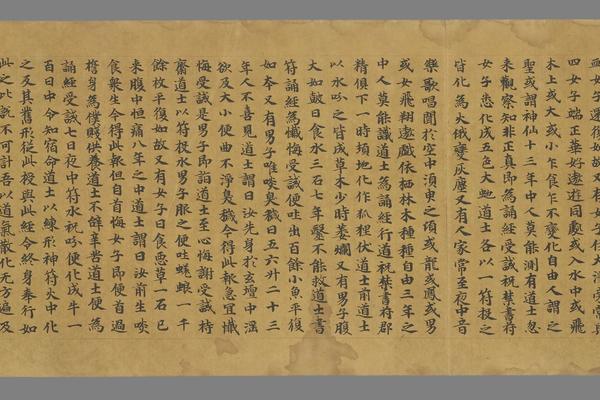 四女子端正華好遨遊同處或入水中或飛
木上或大或小乍食乍不變化自由人謂之
聖或謂神仙十三年中人莫能測有道士忽
來觀察知非正真即為誦經受誡祝禁書符
女子悉化成五色大虵道士各以一符投之
皆化為火俄變灰塵又有人家常至夜中音
樂歌唱聞於空中須臾之頃或龍或鳳或男
或女飛翔遨戲依栖林木種種自由三年之
中人莫能識道士為誦經行道祝禁書符郡
精俱下一時頰地化作狐狸伏道士前道士
以水噀之皆成草木少時萎爛又有男子腹
大如皷日食水三石七年醫不能救道士書
符誦經為懺悔受誡便吐出百餘小魚平復
如本又有男子唯啖臭穢日五六升二十三
年人不喜見道士謂曰汝先身於玄壇中淫
欲及大小便曲不淨臭穢令得此報急宜懺
悔受誡是男子即詣道士至心悔謝受誡持
齋道士以符投水男子服之便吐蜣蜋一千
餘枚平復如故又有女子日食惡草一石已
來腹中恒痛八年之中道士謂曰汝前生啖
食衆生令得此報但自首悔女子即便首過
捨身為僕賤供養道士不辭辛苦道士便為
誦經受誡七日夜中符水祝噀便化成牛一
百日中令知宿命道士以練形神符火中化
之及其舊形從此投與此經令終身奉行如
此之比說不可計吾以道氣散化無方遍及